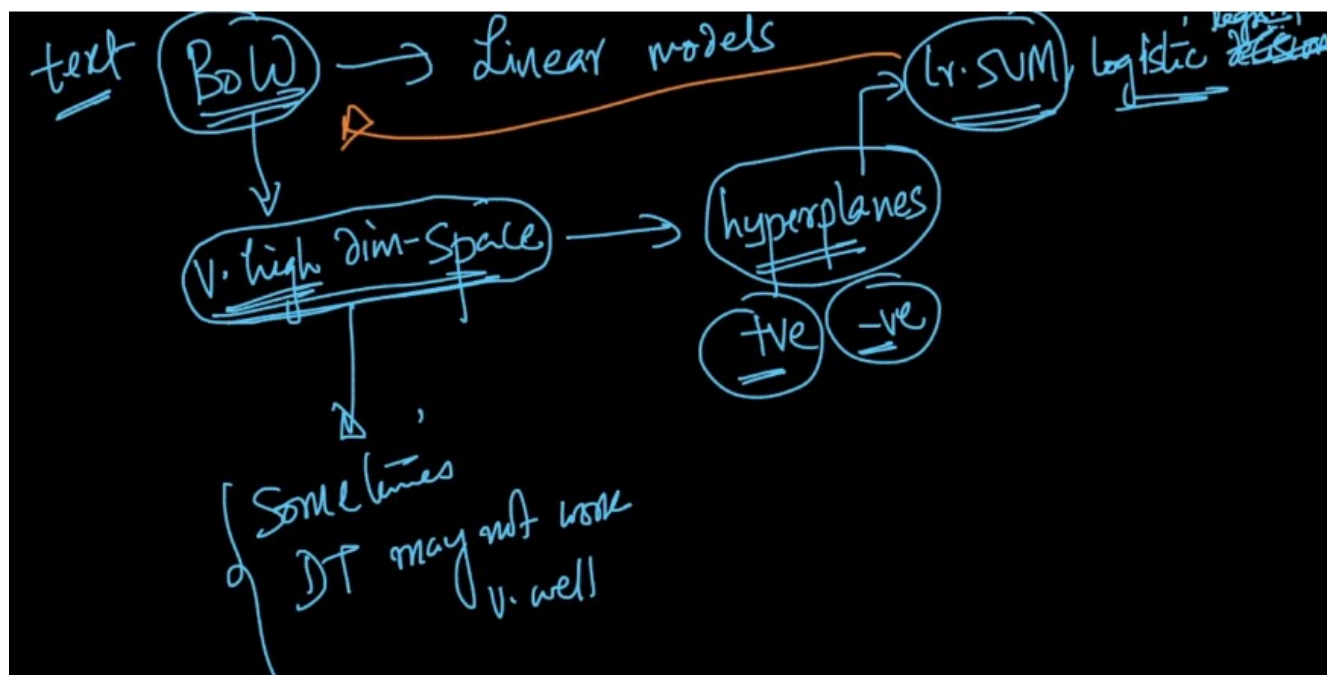 text BoW → Linear models lr. SVM, Logistic
v. high dim-space → hyperplanes
+ve -ve
Sometimes
DT may not work
v. well